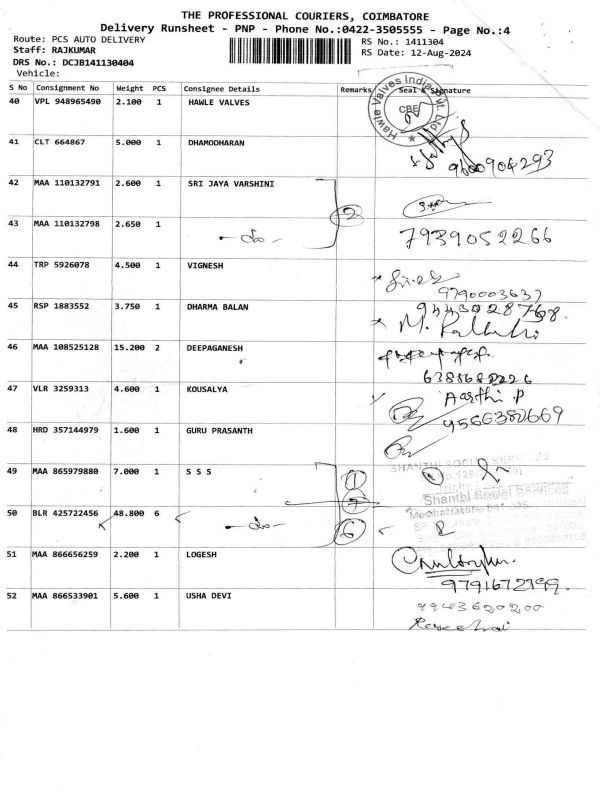 THE PROFESSIONAL COURIERS, COIMBATORE
Delivery Runsheet - PNP - Phone No.:0422-3505555 - Page No.:4
Route: PCS AUTO DELIVERY
RS No.: 1411304
Staff: RAJKUMAR
RS Date: 12-Aug-2024
DRS No.: DCJB141130404
Vehicle:
S No Consignment No Weight PCS Consignee Details Remarks Seal & Signature
40 VPL 948965490 2.100 1 HAWLE VALVES
Hawle Valves India Pvt. Ltd
CBE
41 CLT 664867 5.000 1 DHAMODHARAN
9600904293
42 MAA 110132791 2.600 1 SRI JAYA VARSHINI
2
43 MAA 110132798 2.650 1
- do -
7939052266
44 TRP 5926078 4.500 1 VIGNESH
9790003637
45 RSP 1883552 3.750 1 DHARMA BALAN
9443028768
46 MAA 108525128 15.200 2 DEEPAGANESH
6388682226
47 VLR 3259313 4.600 1 KOUSALYA
Aarthi P
9566382669
48 HRD 357144979 1.600 1 GURU PRASANTH
49 MAA 865979880 7.000 1 S S S
1
Shanthi Social Services
50 BLR 425722456 48.800 6
- do -
6
51 MAA 866656259 2.200 1 LOGESH
9791672199
52 MAA 866533901 5.600 1 USHA DEVI
9943620200